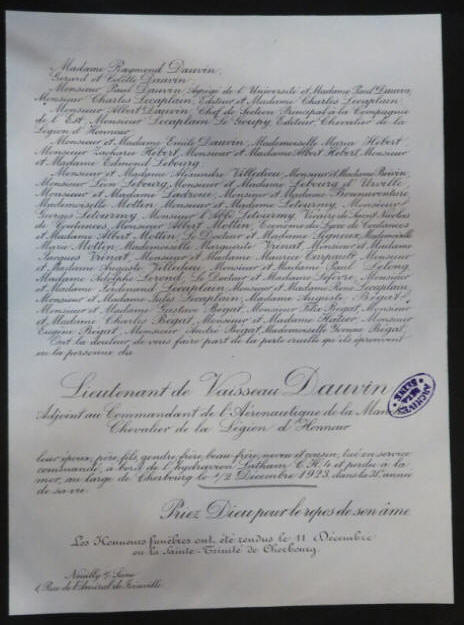 Madame Raymond Dauvin,
Gérard et Colette Dauvin,
Monsieur Paul Dauvin, Agrégé de l'Université et Madame Paul Dauvin,
Monsieur Charles Lecaplain, Editeur et Madame Charles Lecaplain,
Monsieur Albert Dauvin, Chef de Section Principal à la Compagnie
de l'Est, Monsieur Lecaplain Le Goupy, Editeur, Chevalier de la
Légion d'Honneur
Monsieur et Madame Emile Dauvin, Mademoiselle Maria Hébert,
Monsieur Zacharie Hébert, Monsieur et Madame Albert Hébert, Monsieur
et Madame Edmond Lebourg,
Monsieur et Madame Alexandre Villedieu, Monsieur et Madame
Monsieur Léon Lebourg, Monsieur et Madame Lebourg d'Urville,
Monsieur et Madame Ladroue, Monsieur et Madame
Mademoiselle Mottin, Monsieur et Madame Letourmy, Monsieur
Georges Letourmy, Monsieur l'Abbé Letourmy, Vicaire de Saint Nicolas
de Coutances, Monsieur Albert Mottin, Econome du Lycée de Coutances
et Madame Albert Mottin, Le Docteur et Madame Mademoiselle
Marie Mottin, Mademoiselle Marguerite Vrinat, Monsieur et Madame
Jacques Vrinat, Monsieur et Madame Maurice Monsieur
et Madame Auguste Villedieu, Monsieur et Madame Paul Lelong,
Madame Adolphe Lerond, Le Docteur et Madame Lefèvre, Monsieur
et Madame Ferdinand Lecaplain, Monsieur et Madame René Lecaplain,
Monsieur et Madame Jules Lecaplain, Madame Auguste Bégat,
Monsieur et Madame Gustave Bégat, Monsieur Félix Bégat, Monsieur
et Madame Charles Bégat, Monsieur et Madame Monsieur
Eugène Bégat, Monsieur André Bégat, Mademoiselle Yvonne Bégat,
Ont la douleur de vous faire part de la perte cruelle qu'ils éprouvent
en la personne du
Lieutenant de Vaisseau Dauvin
Adjoint au Commandant de l'Aéronautique de la
Chevalier de la Légion d'Honneur
ARCHIVES
leur époux, père, fils, gendre, frère, beau-frère, neveu et cousin, tué en service
commandé, à bord de l'hydravion Latham C.R.4 et perdu à la
mer, au large de Cherbourg le 1/2 Décembre 1923, dans la année
de sa vie.
Priez Dieu pour le repos de son âme
Les Honneurs funèbres ont été rendus le 11 Décembre
en la Sainte-Trinité de Cherbourg.
Neuilly s/ Seine
1, Rue de l'Amiral de Joinville